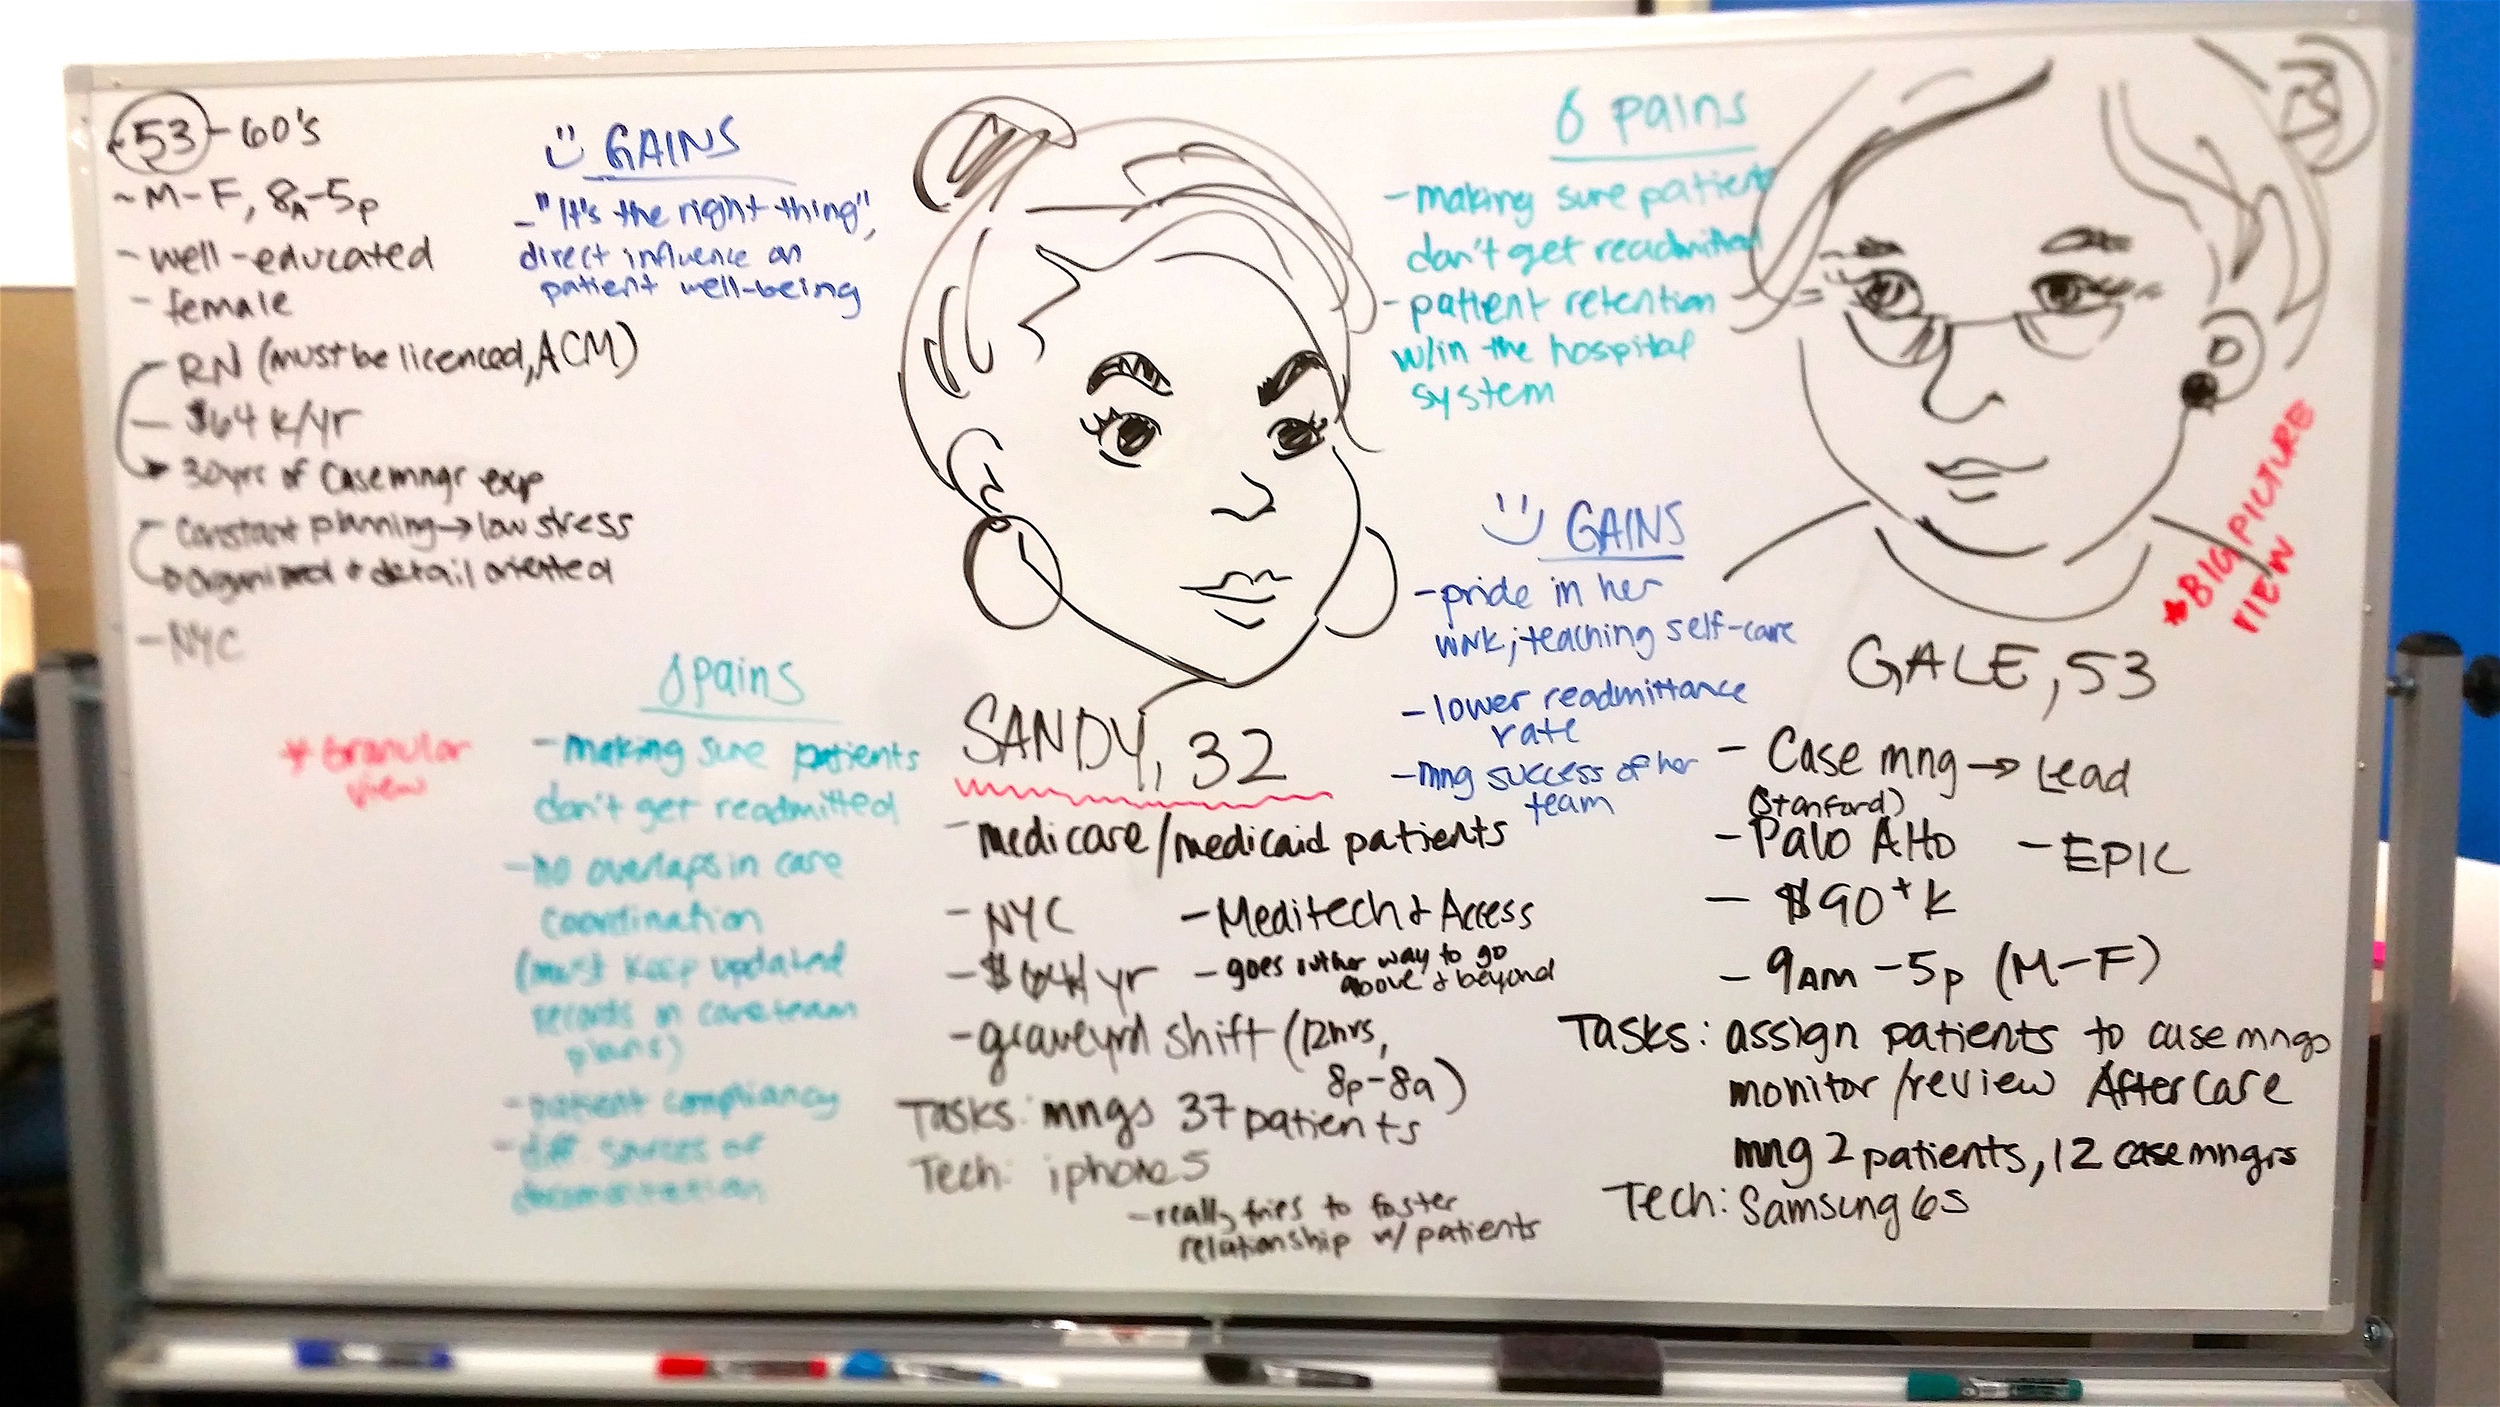 53 - 60's
~ M-F, 8A-5p
- well-educated
- female
RN (must be licenced, ACM)
- $64 k/yr
30yrs of Casemngr exp
Constant planning → low stress
organized + detail oriented
- NYC
GAINS
- "It's the right thing",
direct influence on
patient well-being
* Granular
view
pains
- making sure patients
don't get readmitted
- no overlaps in care
coordination
(must keep updated
records in careteam
plans)
- patient compliancy
- diff sources of
documentation
SANDY, 32
- medicare/medicaid patients
- NYC
- Meditech + Access
- $64k/yr
- goes outher way to go
above + beyond
- graveyrd shift (12hrs,
8p-8a)
Tasks: mngs 37 patients
Tech: iphone 5
- really tries to foster
relationship w/ patients
6 pains
- making sure patients
don't get readmitted
- patient retention
w/in the hospital
system
GAINS
- pride in her
work; teaching self-care
- lower readmittance
rate
- mng success of her
team
* BIG PICTURE
VIEW
GALE, 53
- Case mng → Lead
(Stanford)
- Palo Alto
- EPIC
- $90+k
- 9AM - 5p (M-F)
Tasks: assign patients to case mngs
monitor/review AfterCare
mng 2 patients, 12 case mngrs
Tech: Samsung 6s